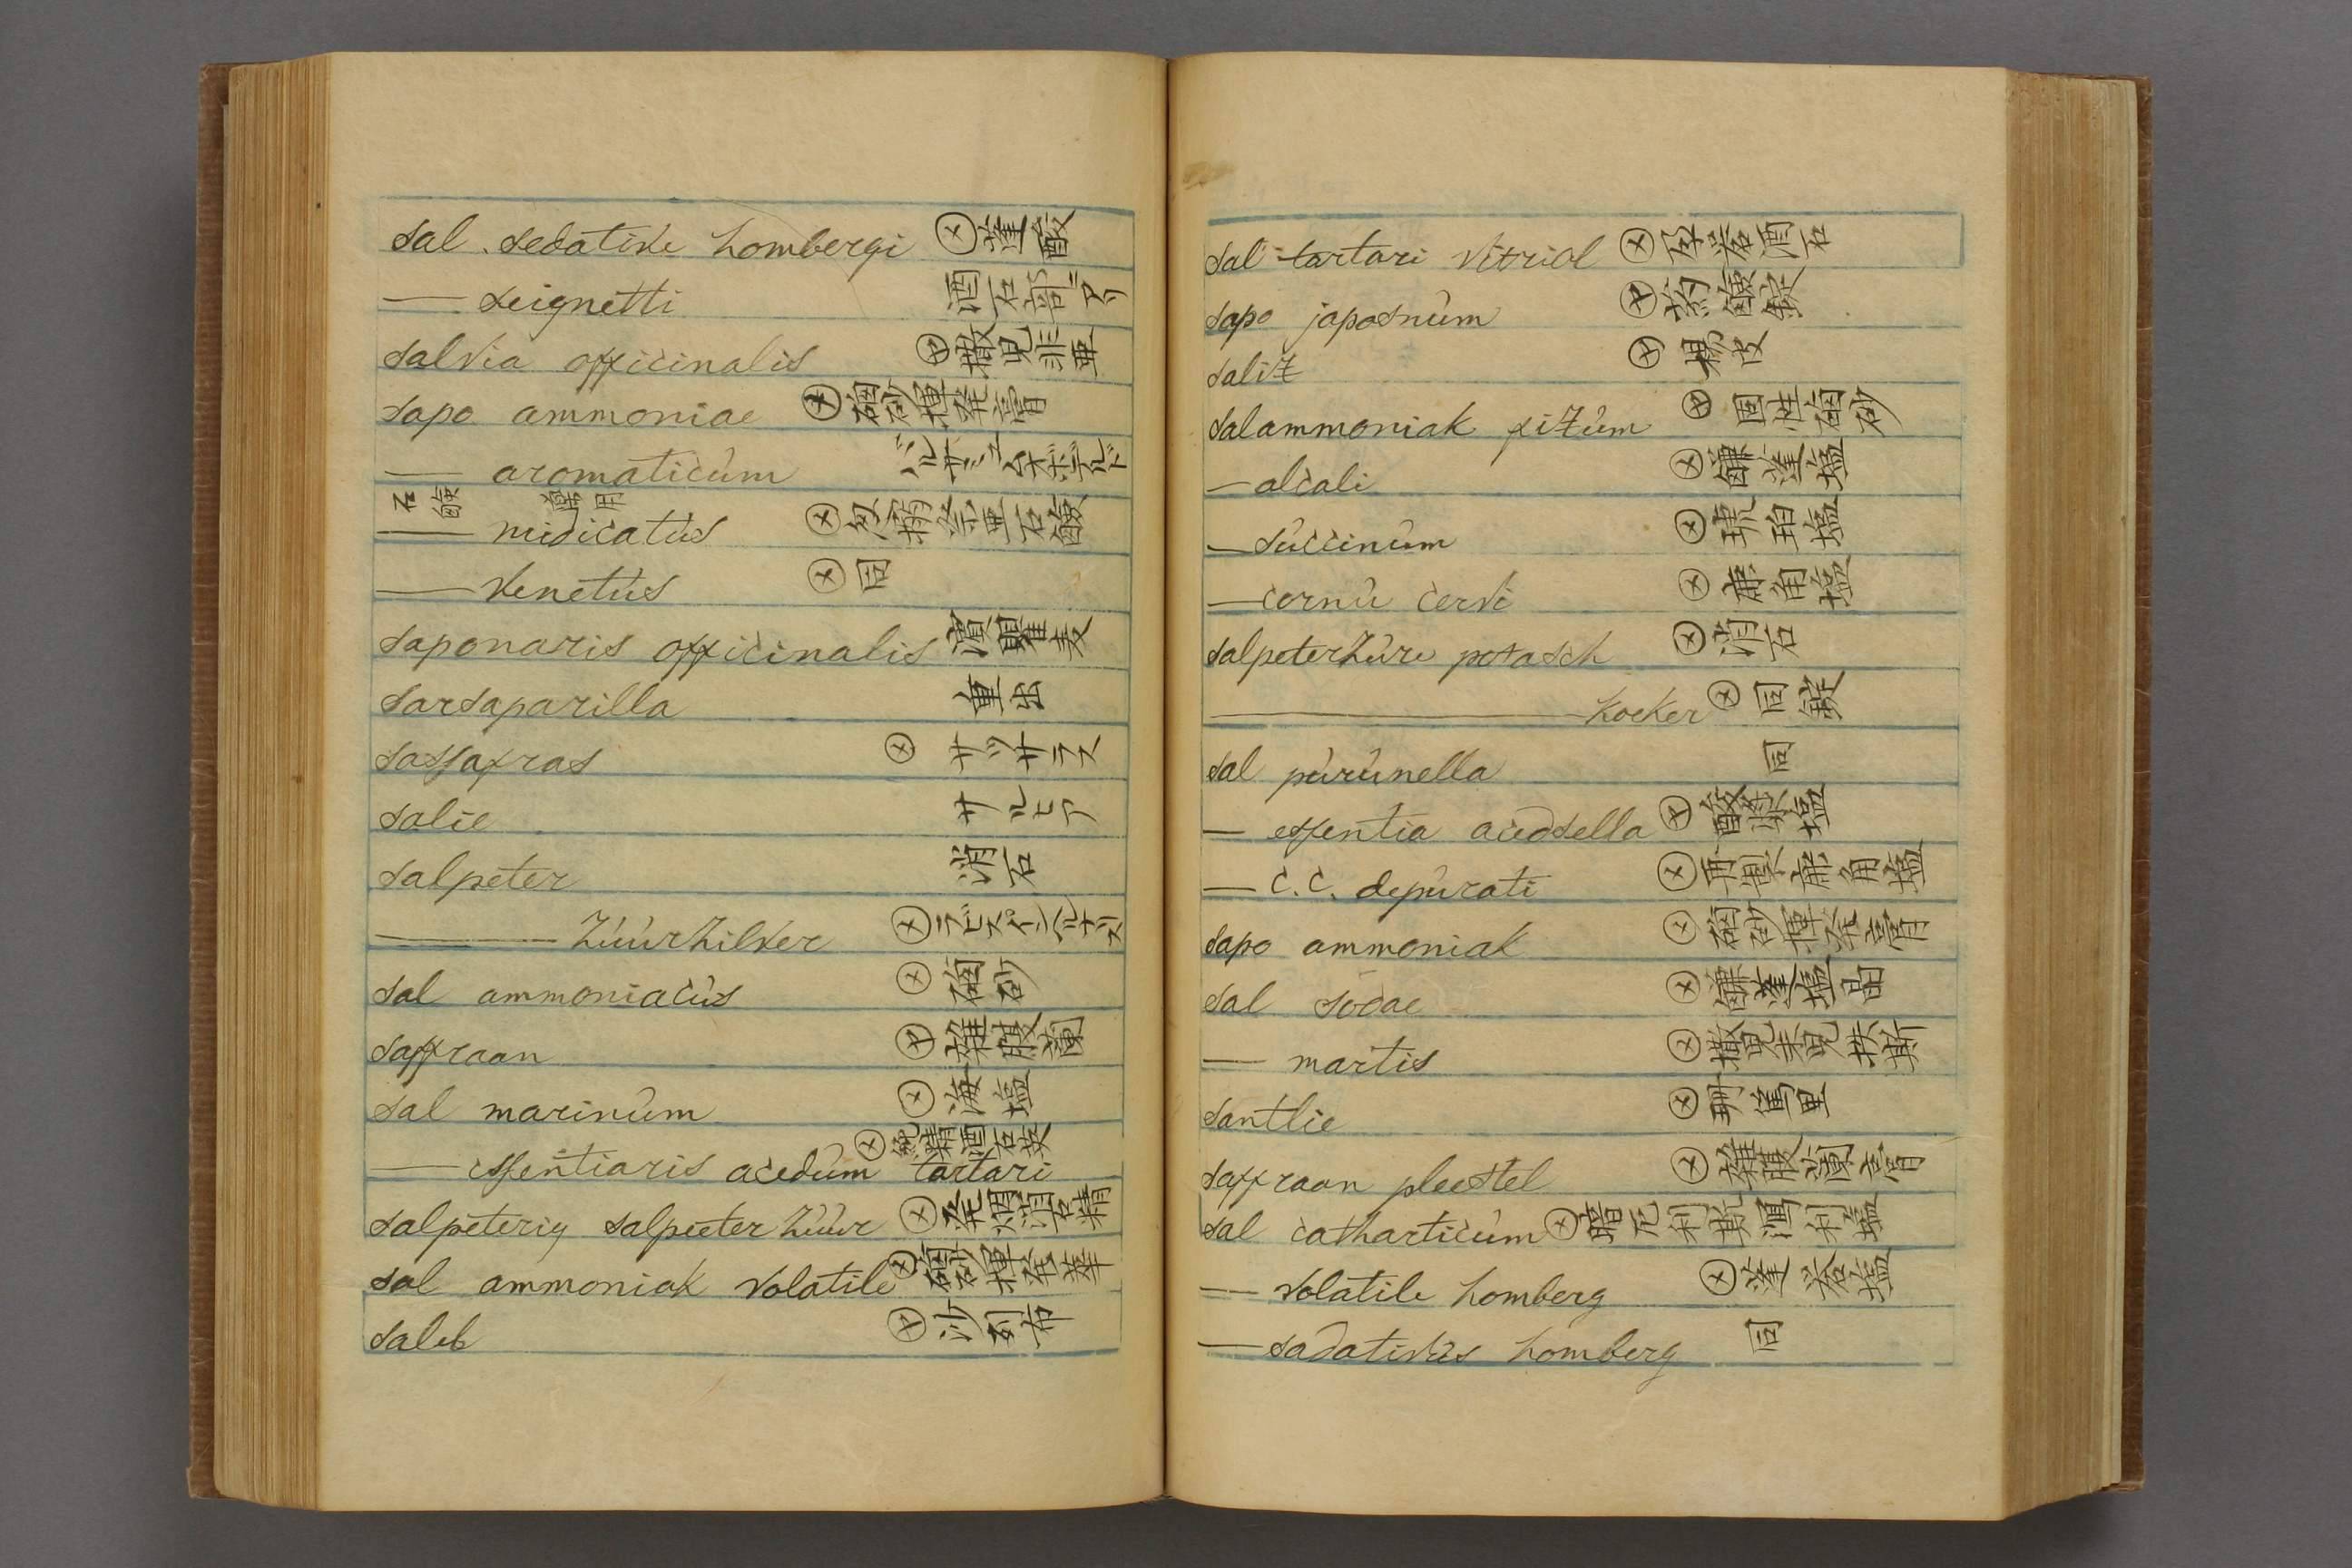 sal. sedative hombergi ㋱ 蓬酸
— seignetti 酒石部ニアリ
salvia officinalis ㋳ 撒児非亜
sapo ammoniae ㋱ 硇砂揮発膏
— aromaticum
石鹸 薬用
— midicatus 石鹸
— venetus ㋱ 同
saponaris officinalis
sarsaparilla 重出
sassafras ㋱ サッサラス
salie サルヒア
salpeter 消石
— zuurzilver ㋱
sal ammoniacus ㋱ 硇砂
saffraan ㋳ 雑腹蘭
sal marinum ㋱ 海塩
— essentiaris acedum tartari ㋱ 純精酒石英
salpeterig salpeter zuur ㋱ 発煙消石精
sal ammoniak volatile ㋱ 硇砂揮発華
saleb ㋳ 沙列布
sal tartari vitriol ㋱ 酒石
sapo japosnum ㋳
salix ㋳ 楊皮
salammoniak fixum ㋳ 固性硇砂
— alcali ㋱ 鹻蓬塩
— succinum ㋱ 琥珀塩
— cornu cervi ㋱ 鹿角塩
salpeterzure potasch ㋱ 消石
— koeker ㋱ 同錠
sal purunella 同
— essentia acedsella ㋳ 酸模塩
— c.c. depurati ㋱ 再製鹿角塩
sapo ammoniak ㋱ 硇砂揮発膏
sal sodae ㋱ 鹻蓬塩晶
— martis ㋱
santlie ㋱
saffraan pleestel ㋱ 雑腹蘭膏
sal catharticum ㋱
— volatile homberg ㋱ 塩
— sadativus homberg 同